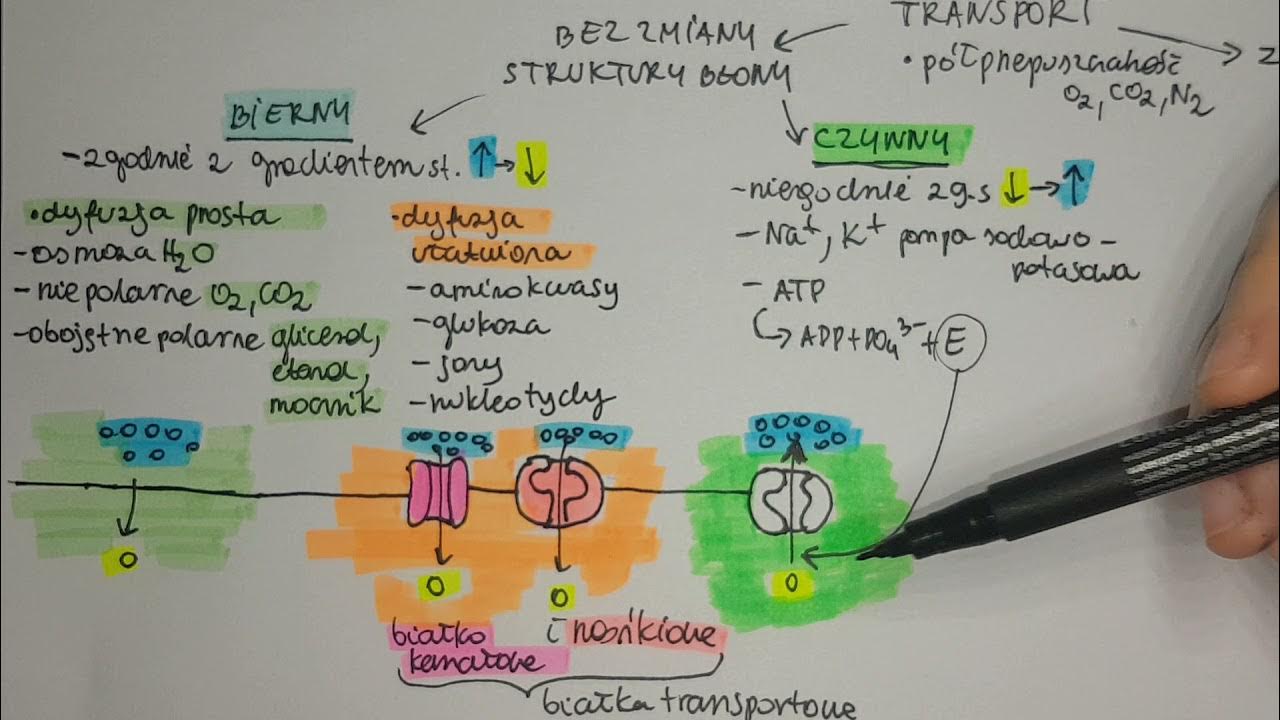 TRANSPORT
• półprzepuszczalność
O2, CO2, N2
Z
BEZ ZMIANY
STRUKTURY BŁONY
BIERNY
- zgodnie z gradientem st. ↑→↓
• dyfuzja prosta
- osmoza H2O
- niepolarne O2, CO2
- obojętne polarne glicerol,
etanol,
mocznik
• dyfuzja
ułatwiona
- aminokwasy
- glukoza
- jony
- nukleotydy
CZYNNY
- niezgodnie z g.s ↓→↑
- Na+, K+ pompa sodowo-
potasowa
- ATP
↳ ADP+PO4 3- + E
białko
kanałowe
i nośnikowe
białka transportowe